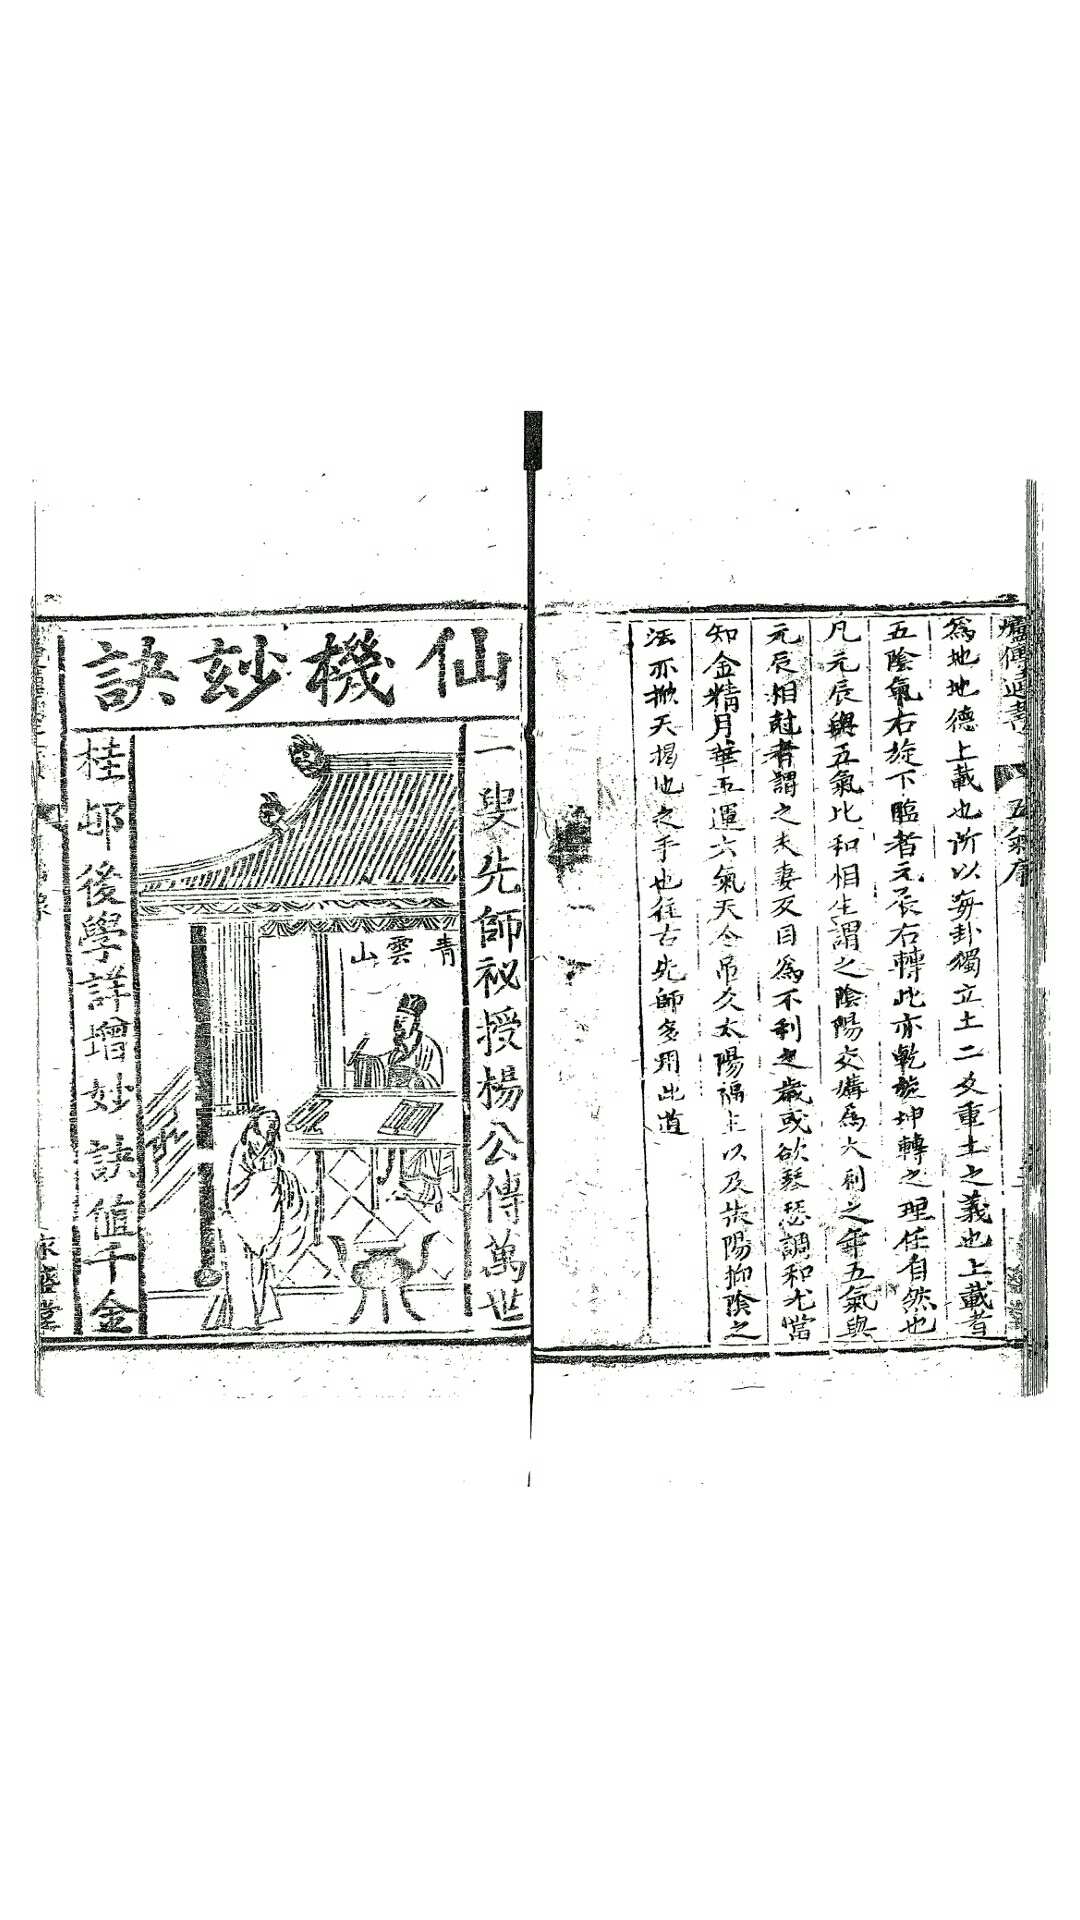 五氣序
爲地地德上載也所以每卦獨立土二爻重土之義也上載者
五陰氣右旋下臨者元辰右轉此亦乾旋坤轉之理任自然也
凡元辰與五氣比和相生謂之陰陽交媾爲大利之年五氣與
元辰相尅者謂之夫妻反目爲不利之歲或欲琴瑟調和尤當
知金精月華五運六氣天令吊久太陽福主以及扶陽抑陰之
法亦撇天揭地之手也徃古先師多用此道
仙機玅訣
一叟先師祕授楊公傳萬世
青雲山
桂邨後學詳增妙訣值千金